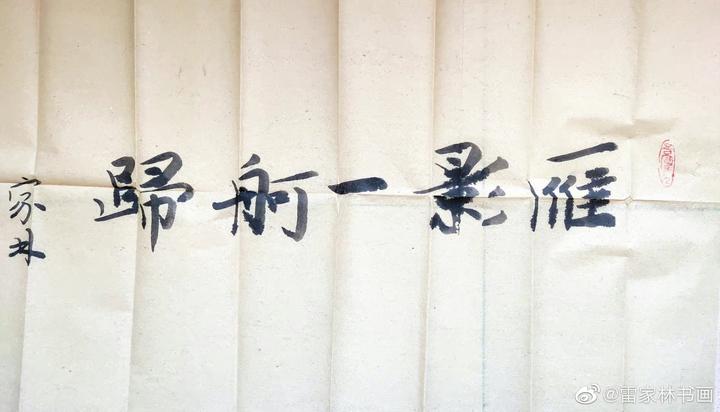 雁影一舸歸
家林
@雷家林书画